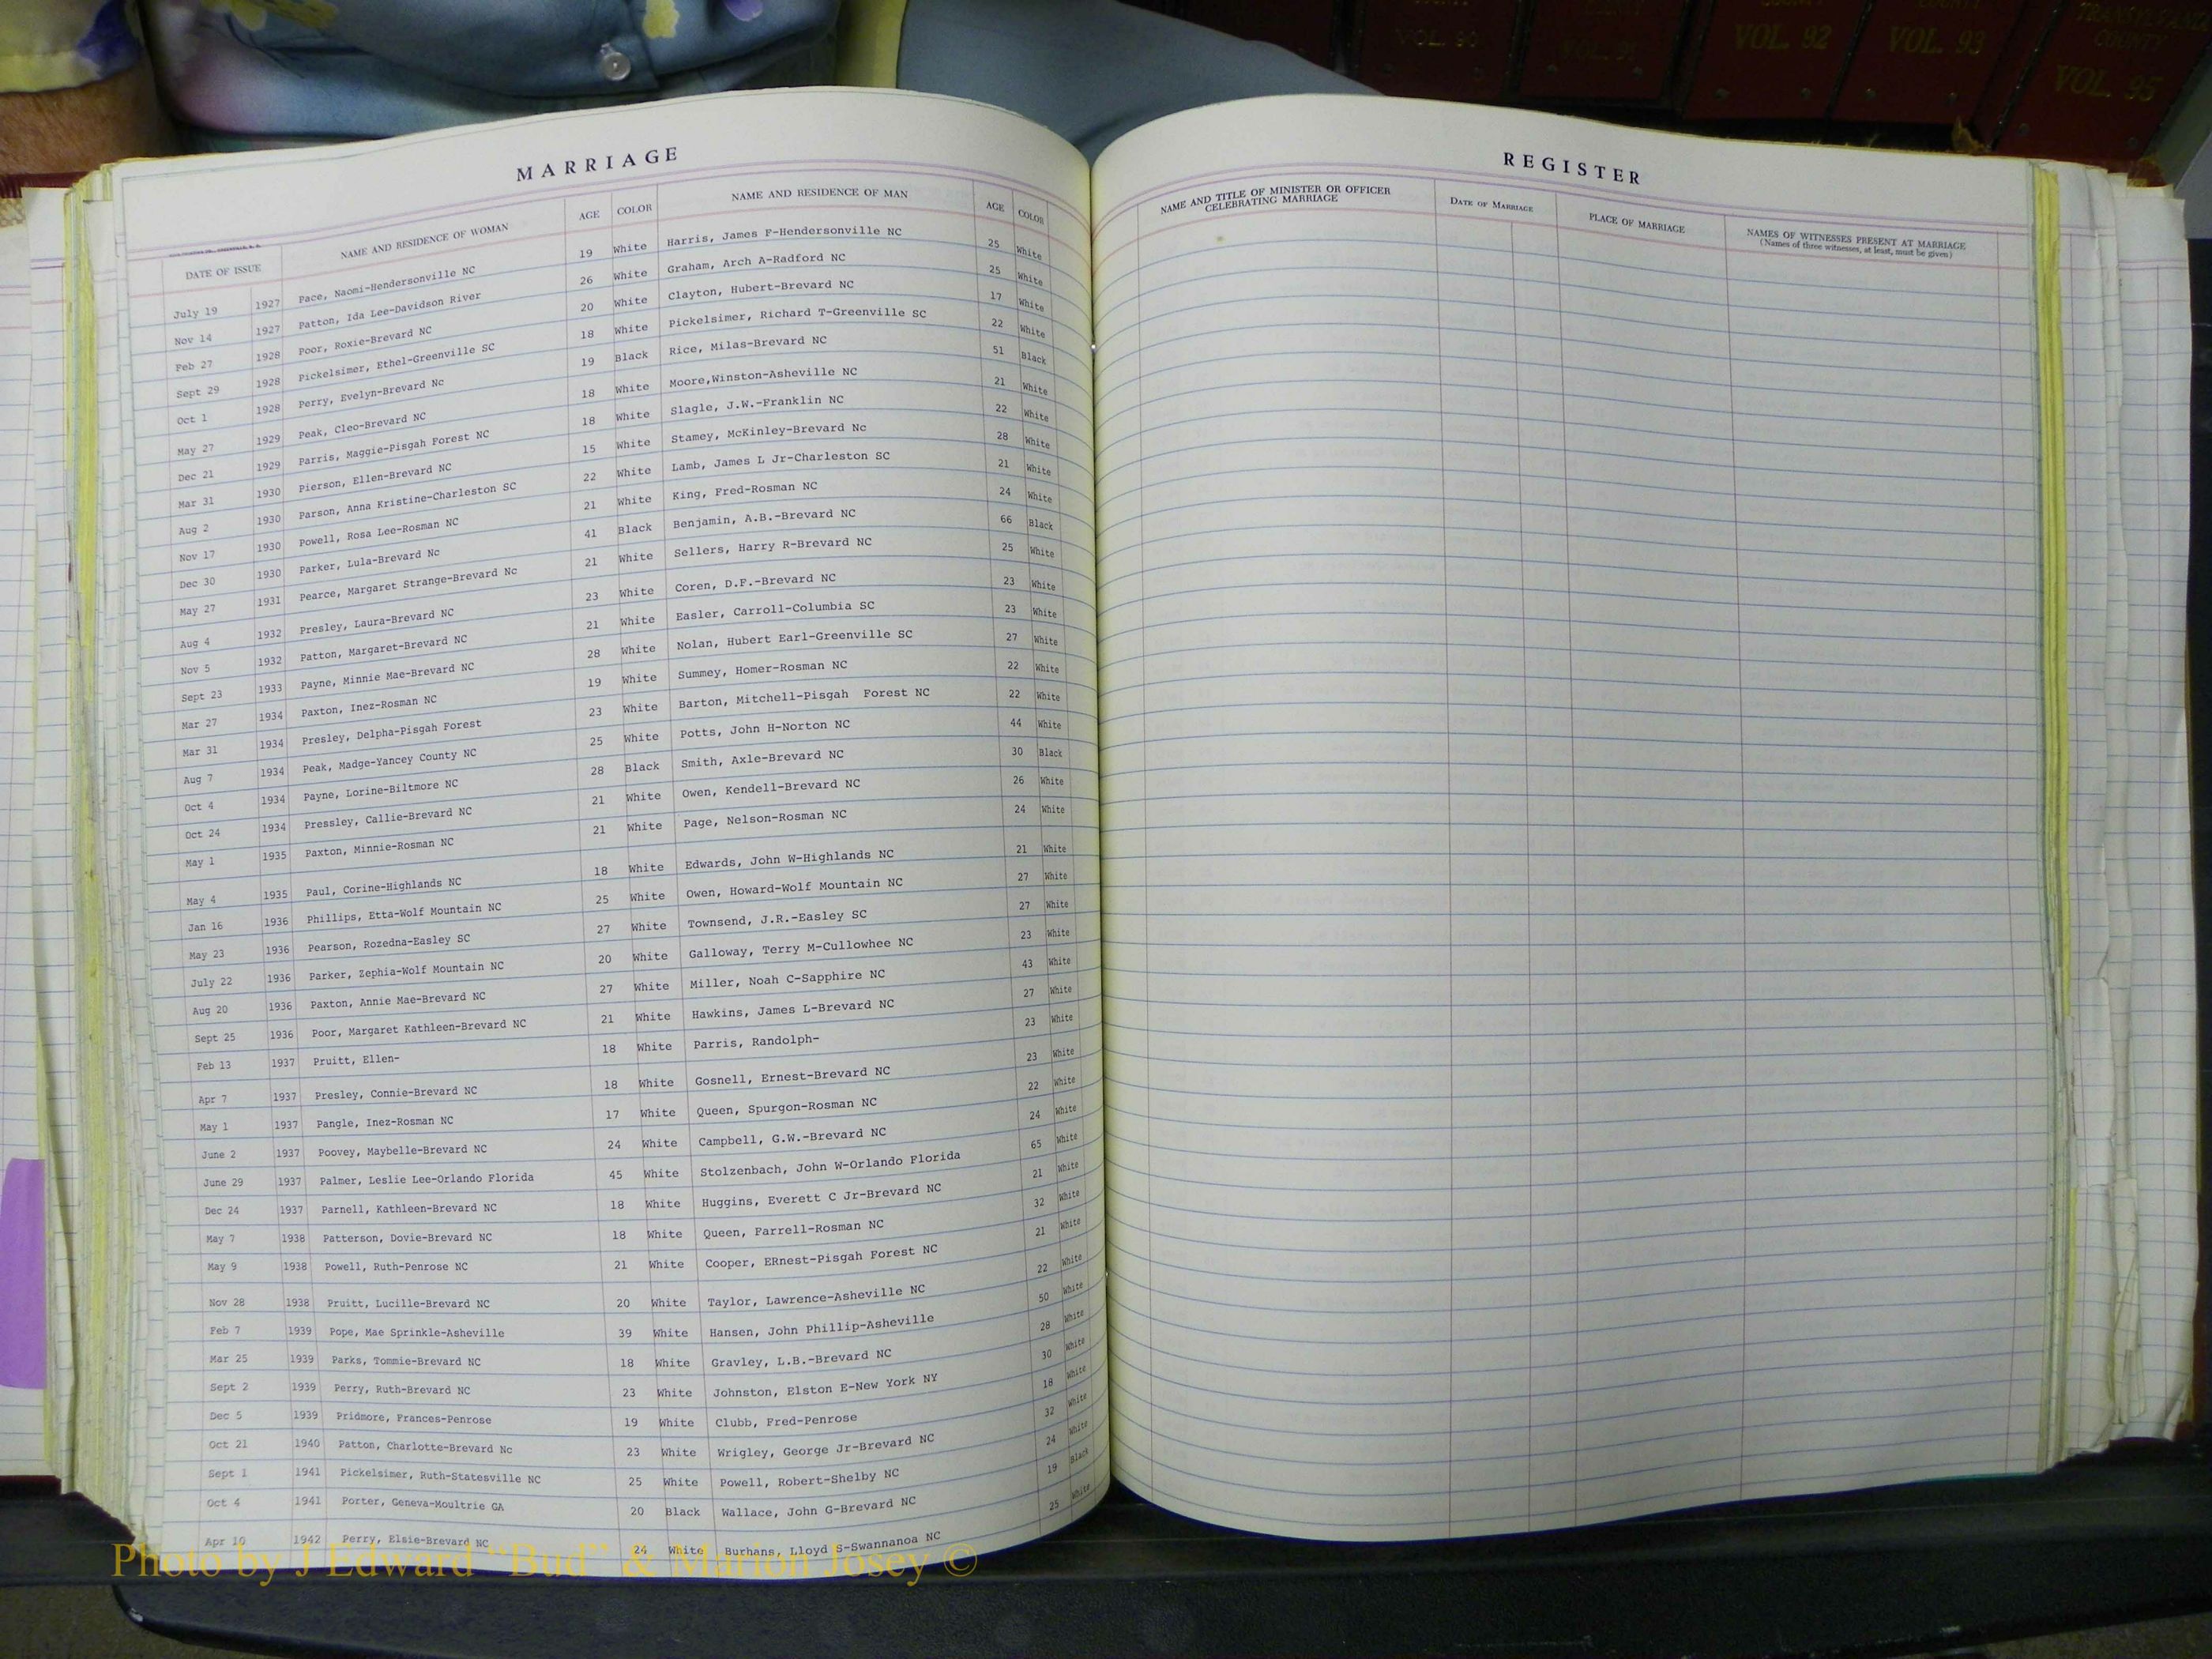 COUNTY
VOL. 90
VOL. 91
COUNTY
VOL. 92
COUNTY
VOL. 93
COUNTY
VOL. 95
MARRIAGE
DATE OF ISSUE NAME AND RESIDENCE OF WOMAN AGE COLOR NAME AND RESIDENCE OF MAN AGE COLOR
July 19 1927 Pace, Naomi-Hendersonville NC 19 White Harris, James F-Hendersonville NC 25 White
Nov 14 1927 Patton, Ida Lee-Davidson River 26 White Graham, Arch A-Radford NC 25 White
Feb 27 1928 Poor, Roxie-Brevard NC 20 White Clayton, Hubert-Brevard NC 17 White
Sept 29 1928 Pickelsimer, Ethel-Greenville SC 18 White Pickelsimer, Richard T-Greenville SC 22 White
Oct 1 1928 Perry, Evelyn-Brevard Nc 19 Black Rice, Milas-Brevard NC 51 Black
May 27 1929 Peak, Cleo-Brevard NC 18 White Moore,Winston-Asheville NC 21 White
Dec 21 1929 Parris, Maggie-Pisgah Forest NC 18 White Slagle, J.W.-Franklin NC 22 White
Mar 31 1930 Pierson, Ellen-Brevard NC 15 White Stamey, McKinley-Brevard Nc 28 White
Aug 2 1930 Parson, Anna Kristine-Charleston SC 22 White Lamb, James L Jr-Charleston SC 21 White
Nov 17 1930 Powell, Rosa Lee-Rosman NC 21 White King, Fred-Rosman NC 24 White
Dec 30 1930 Parker, Lula-Brevard Nc 41 Black Benjamin, A.B.-Brevard NC 66 Black
May 27 1931 Pearce, Margaret Strange-Brevard Nc 21 White Sellers, Harry R-Brevard NC 25 White
Aug 4 1932 Presley, Laura-Brevard NC 23 White Coren, D.F.-Brevard NC 23 White
Nov 5 1932 Patton, Margaret-Brevard NC 21 White Easler, Carroll-Columbia SC 23 White
Sept 23 1933 Payne, Minnie Mae-Brevard NC 28 White Nolan, Hubert Earl-Greenville SC 27 White
Mar 27 1934 Paxton, Inez-Rosman NC 19 White Summey, Homer-Rosman NC 22 White
Mar 31 1934 Presley, Delpha-Pisgah Forest 23 White Barton, Mitchell-Pisgah Forest NC 22 White
Aug 7 1934 Peak, Madge-Yancey County NC 25 White Potts, John H-Norton NC 44 White
Oct 4 1934 Payne, Lorine-Biltmore NC 28 Black Smith, Axle-Brevard NC 30 Black
Oct 24 1934 Pressley, Callie-Brevard NC 21 White Owen, Kendell-Brevard NC 26 White
May 1 1935 Paxton, Minnie-Rosman NC 21 White Page, Nelson-Rosman NC 24 White
May 4 1935 Paul, Corine-Highlands NC 18 White Edwards, John W-Highlands NC 21 White
Jan 16 1936 Phillips, Etta-Wolf Mountain NC 25 White Owen, Howard-Wolf Mountain NC 27 White
May 23 1936 Pearson, Rozedna-Easley SC 27 White Townsend, J.R.-Easley SC 27 White
July 22 1936 Parker, Zephia-Wolf Mountain NC 20 White Galloway, Terry M-Cullowhee NC 23 White
Aug 20 1936 Paxton, Annie Mae-Brevard NC 27 White Miller, Noah C-Sapphire NC 43 White
Sept 25 1936 Poor, Margaret Kathleen-Brevard NC 21 White Hawkins, James L-Brevard NC 27 White
Feb 13 1937 Pruitt, Ellen- 18 White Parris, Randolph- 23 White
Apr 7 1937 Presley, Connie-Brevard NC 18 White Gosnell, Ernest-Brevard NC 23 White
May 1 1937 Pangle, Inez-Rosman NC 17 White Queen, Spurgon-Rosman NC 22 White
June 2 1937 Poovey, Maybelle-Brevard NC 24 White Campbell, G.W.-Brevard NC 24 White
June 29 1937 Palmer, Leslie Lee-Orlando Florida 45 White Stolzenbach, John W-Orlando Florida 65 White
Dec 24 1937 Parnell, Kathleen-Brevard NC 18 White Huggins, Everett C Jr-Brevard NC 21 White
May 7 1938 Patterson, Dovie-Brevard NC 18 White Queen, Farrell-Rosman NC 32 White
May 9 1938 Powell, Ruth-Penrose NC 21 White Cooper, ERnest-Pisgah Forest NC 21 White
Nov 28 1938 Pruitt, Lucille-Brevard NC 20 White Taylor, Lawrence-Asheville NC 22 White
Feb 7 1939 Pope, Mae Sprinkle-Asheville 39 White Hansen, John Phillip-Asheville 50 White
Mar 25 1939 Parks, Tommie-Brevard NC 18 White Gravley, L.B.-Brevard NC 28 White
Sept 2 1939 Perry, Ruth-Brevard NC 23 White Johnston, Elston E-New York NY 30 White
Dec 5 1939 Pridmore, Frances-Penrose 19 White Clubb, Fred-Penrose 18 White
Oct 21 1940 Patton, Charlotte-Brevard Nc 23 White Wrigley, George Jr-Brevard NC 32 White
Sept 1 1941 Pickelsimer, Ruth-Statesville NC 25 White Powell, Robert-Shelby NC 24 White
Oct 4 1941 Porter, Geneva-Moultrie GA 20 Black Wallace, John G-Brevard NC 19 Black
Apr 10 1942 Perry, Elsie-Brevard NC 24 White Burhans, Lloyd S-Swannanoa NC 25 White
REGISTER
NAME AND TITLE OF MINISTER OR OFFICER CELEBRATING MARRIAGE
DATE OF MARRIAGE
PLACE OF MARRIAGE
NAMES OF WITNESSES PRESENT AT MARRIAGE
(Names of three witnesses, at least, must be given)
Photo by J Edward "Bud" & Marion Josey ©